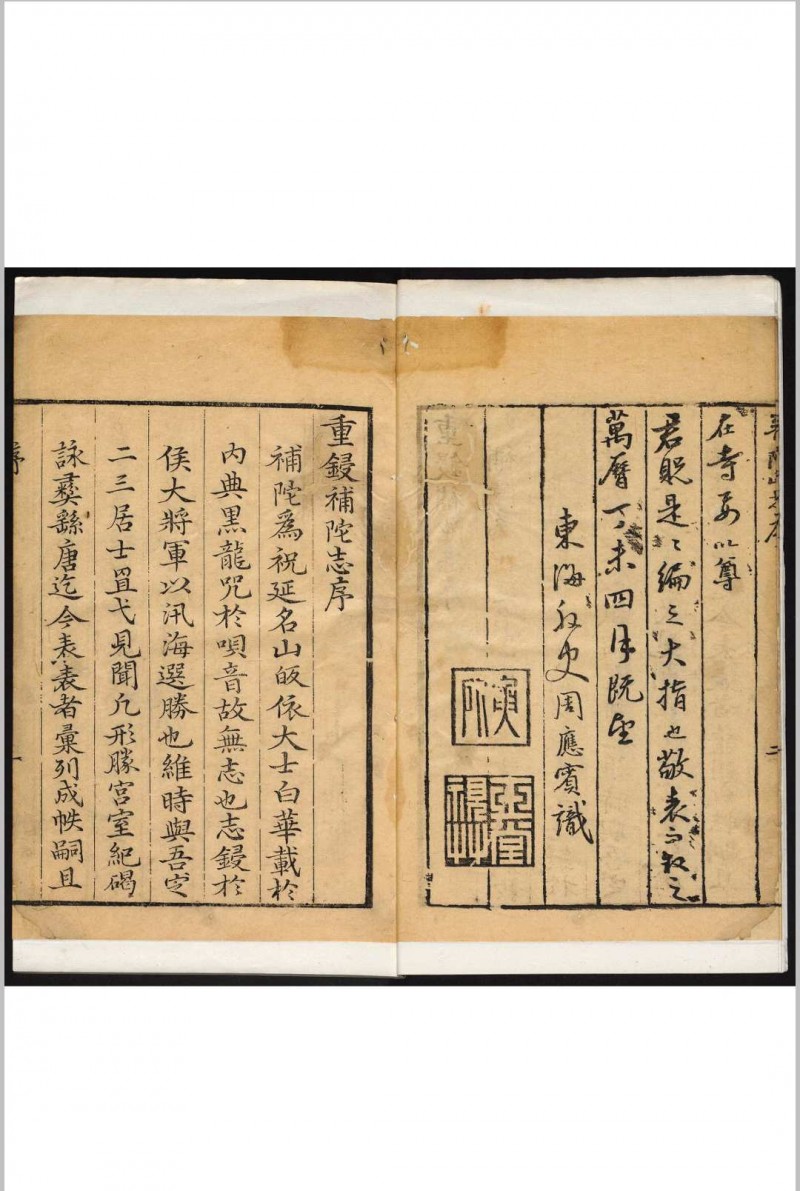 在寺要以尊
君貺是〻編之大指也敬表而敘之
萬曆丁未四月既望
東海外史周應賓識
二
重鋟補陀志序
補陀爲祝延名山皈依大士白華載於
內典黑龍咒於唄音故無志也志鋟於
侯大將軍以汛海選勝也維時與吾定
二三居士罝弋見聞凡形勝宮室紀碣
詠彝繇唐迄今表表者彙列成帙嗣且
序
一